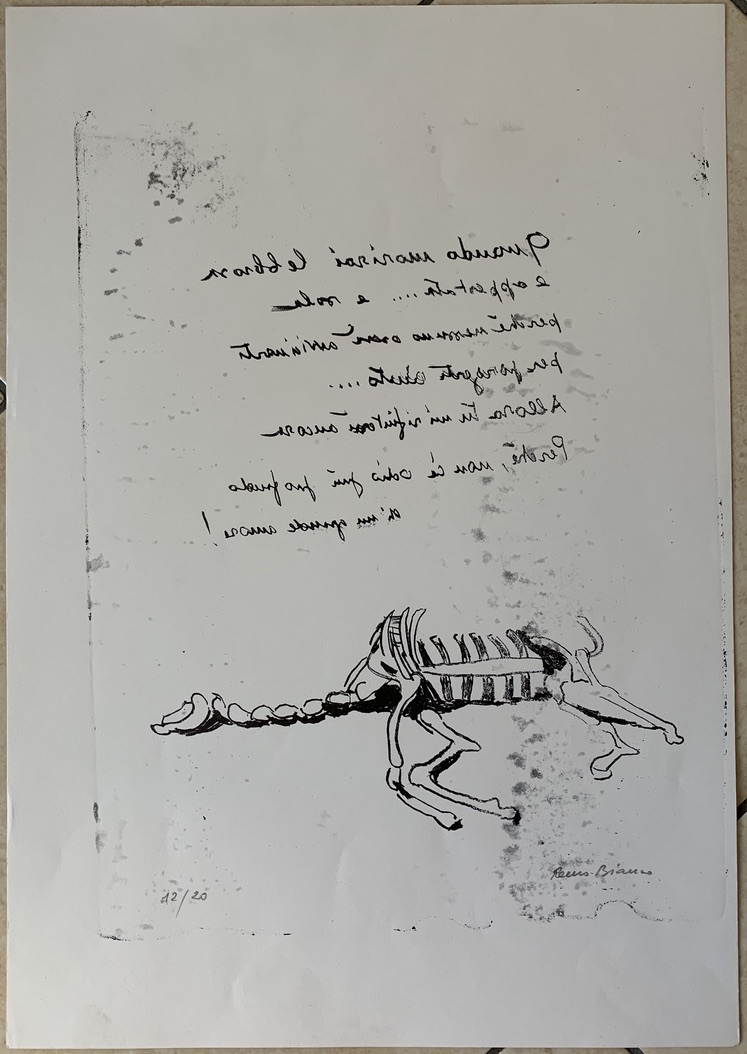 Quando morirai lebbrosa
e appestata .... e sola
perchè nessuno oserà avvicinarti
per porgerti aiuto ....
Allora tu mi rifiutasti ancora
Perchè, non c'è odio più profondo
d'un grande amore!
Remo Bianco
12/20